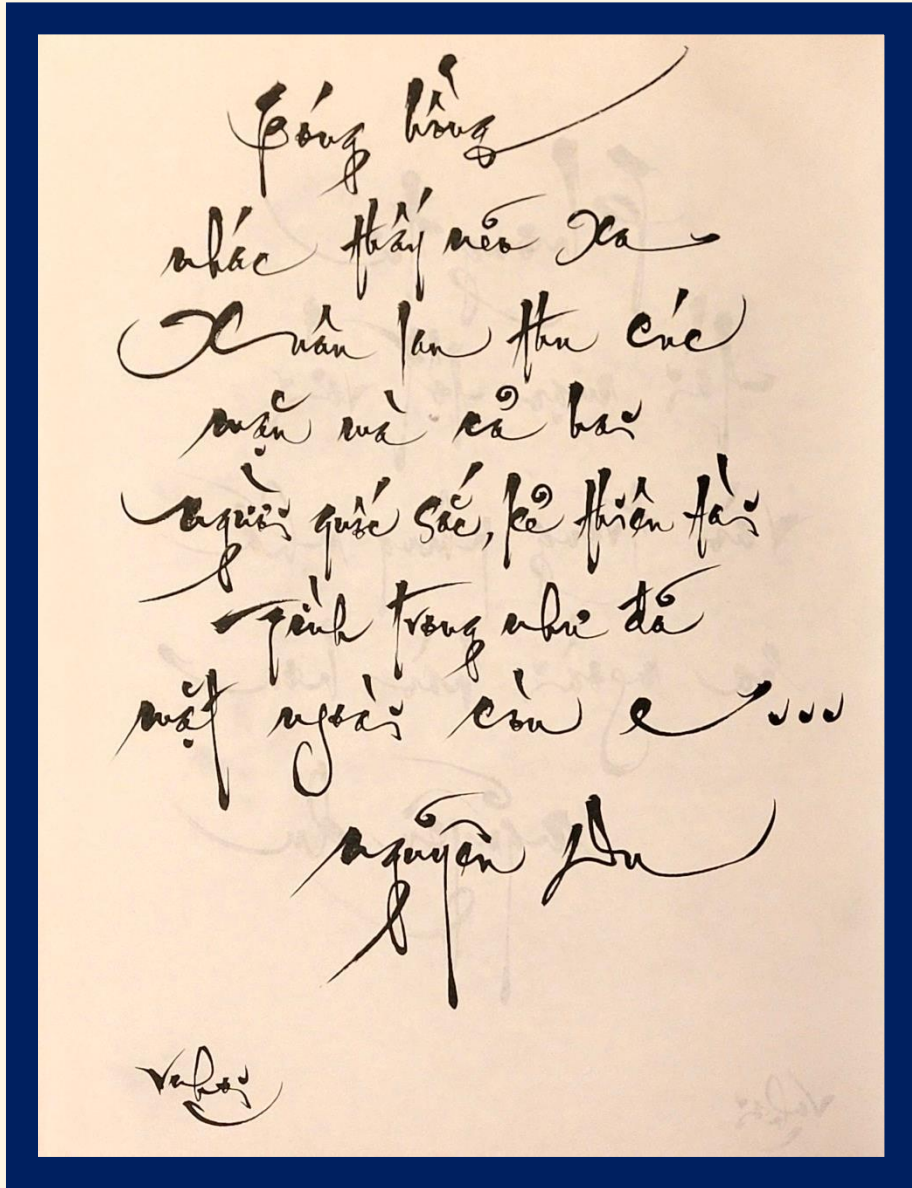 Bóng hồng
nhác thấy nẻo xa
Xuân lan thu cúc
mặn mà cả hai
người quốc sắc, kẻ thiên tài
Tình trong như đã
mặt ngoài còn e...
Nguyễn Du